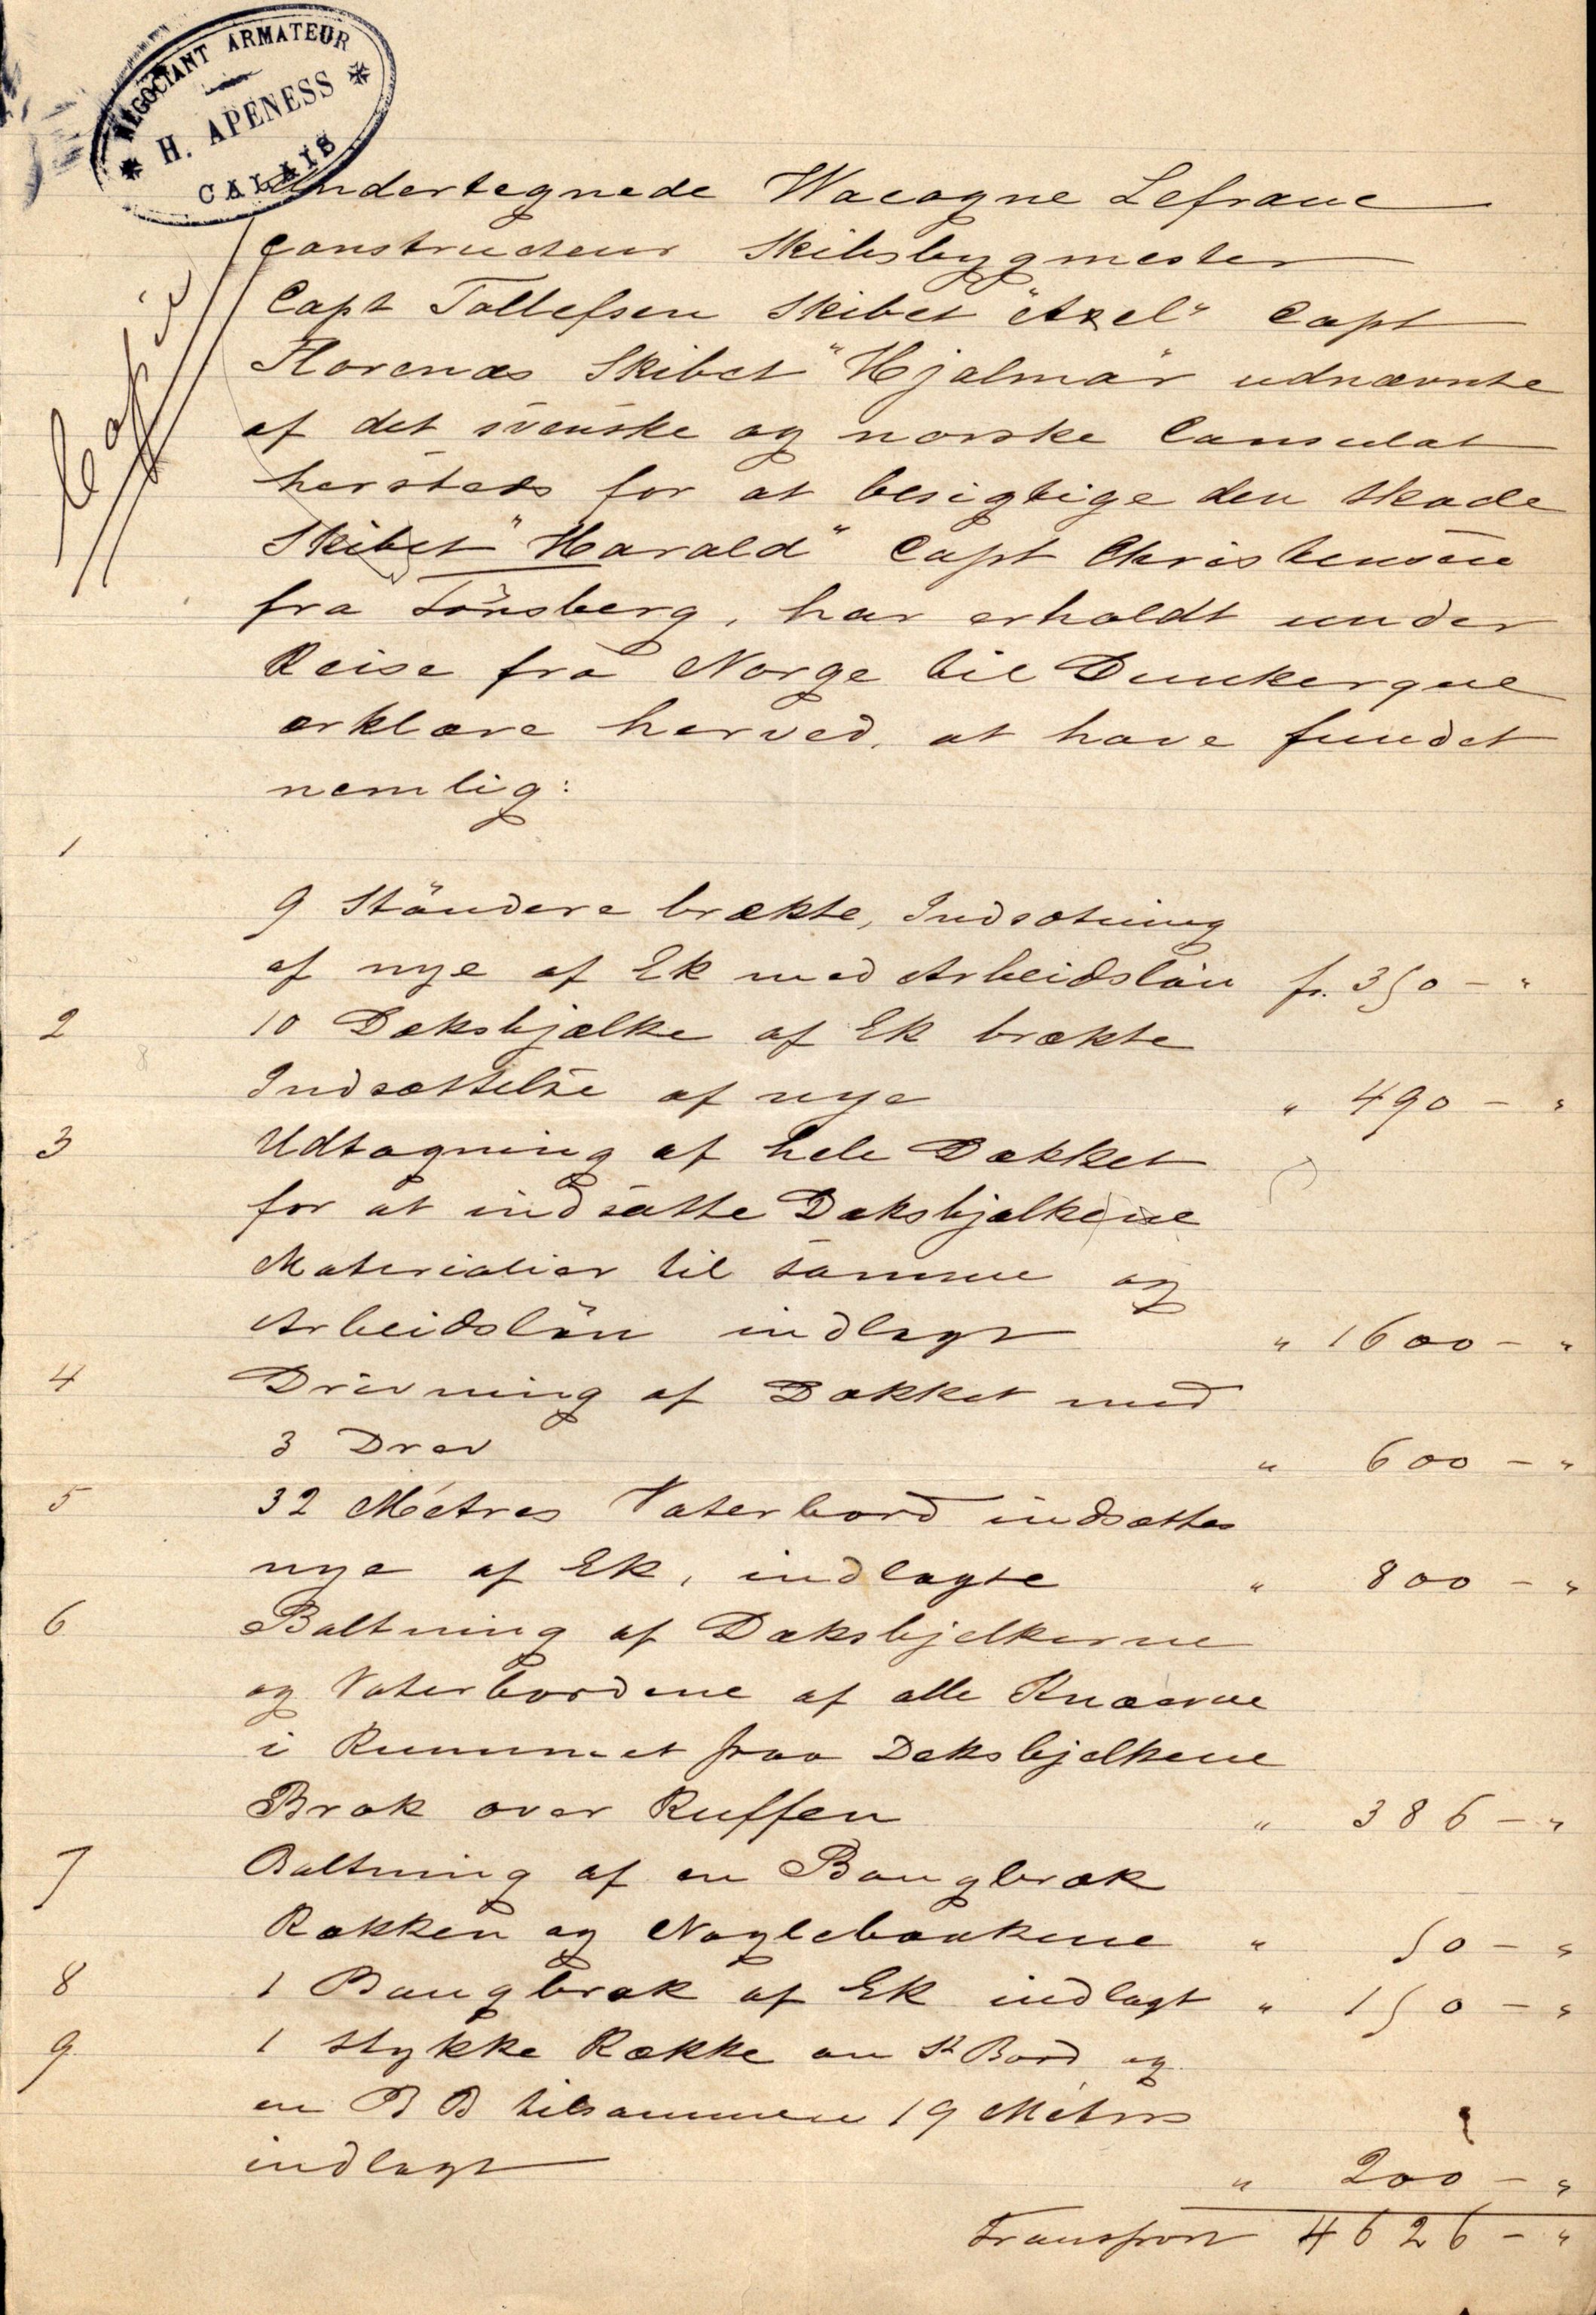 NÉGOCIANT ARMATEUR
H. APENESS
CALAIS
Copie
Undertegnede Wacogne Lefranc
Constructeur Skibsbygmester
Capt Tollefsen Skibet "Axel" Capt
Florenæs Skibet "Hjalmar" udnævnte
af det svenske og norske Consulat
hersteds for at besigtige den Skade
Skibet "Harald" Capt Christensen
fra Tönsberg, har erholdt under
Reise fra Norge til Dunkerque
erklære herved, at have fundet
nemlig:
1
9 Ständere brækte, Indsætning
af nye af Ek med Arbeidslön fr. 350 - "
2 10 Dæksbjælke af Ek brækte
Indsættelse af nye " 490 - "
3 Udtagning af hele Dækket
for at indsætte Dæksbjælkene
Materialier til samme og
Arbeidslön indlagt " 1600 - "
4 Drivning af Dækket med
3 Drev " 600 - "
5 32 Métres Vaterbord indsættes
nye af Ek, indlagte " 800 - "
6 Boltning af Dæksbjelkerne
og Vaterbordene af alle Knæerne
i Rummet paa Deksbjelkene
Bræk over Ruffen " 386 - "
7 Boltning af en Bougbræk
Rækken og Naglebænkene " 50 - "
8 1 Bougbræk af Ek indlagt " 150 - "
9 1 Stykke Række en St Bord og
en B B tilsammen 19 Métres
indlagt " 200 - "
Transport 4626 - "